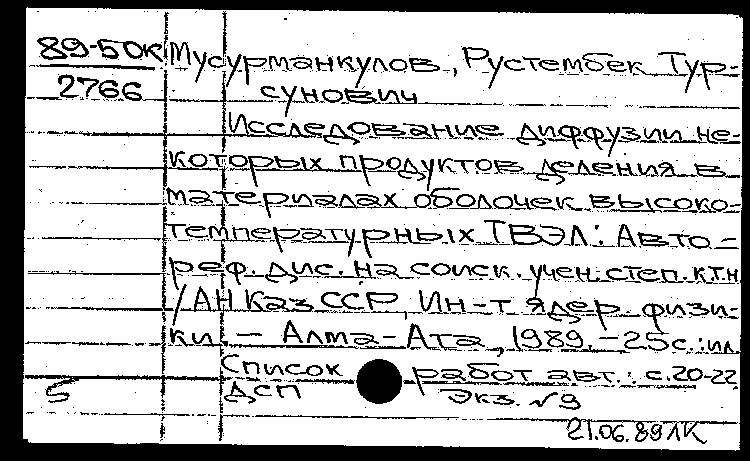 89-50к Мусурманкулов, Рустембек Тур-
2766 сунович
Исследование диффузии не-
которых продуктов деления в
материалах оболочек высоко-
температурных ТВЭЛ: Авто-
реф. дис. на соиск. учен. степ. к.т.н
/АН КазССР, Ин-т ядер. физи-
ки. – Алма-Ата, 1989. – 25с.: ил
Список работ авт.: с.20-22
5 ДСП Экз. №9
21.06.89ЛК